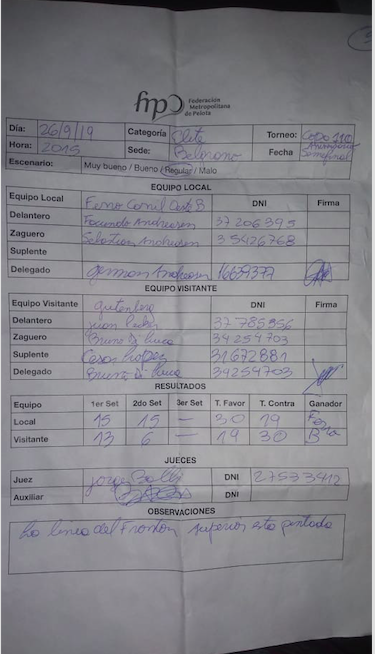 fmp
Federación
Metropolitana
de Pelota
Día: 26/9/19 Categoría Elite Torneo: Copa 110
Hora: 2015 Sede: Belgrano Fecha Semifinal
Escenario: Muy bueno / Bueno / Regular / Malo
EQUIPO LOCAL
Equipo Local DNI Firma
Delantero Facundo Andreasen 37206395
Zaguero Sebastian Andreasen 35426768
Suplente
Delegado German Andreasen 16639377
EQUIPO VISITANTE
Equipo Visitante gutenberg DNI Firma
Delantero Juan 37785956
Zaguero Bruno 34254703
Suplente Cesar Lopez 31672881
Delegado Bruno 34254703
RESULTADOS
Equipo 1er Set 2do Set 3er Set T. Favor T. Contra Ganador
Local 15 15 — 30 19 Ferro
Visitante 13 6 — 19 30 B
JUECES
Juez Jorge DNI 27533412
Auxiliar DNI
OBSERVACIONES
La linea del Fronton superior esta pintada